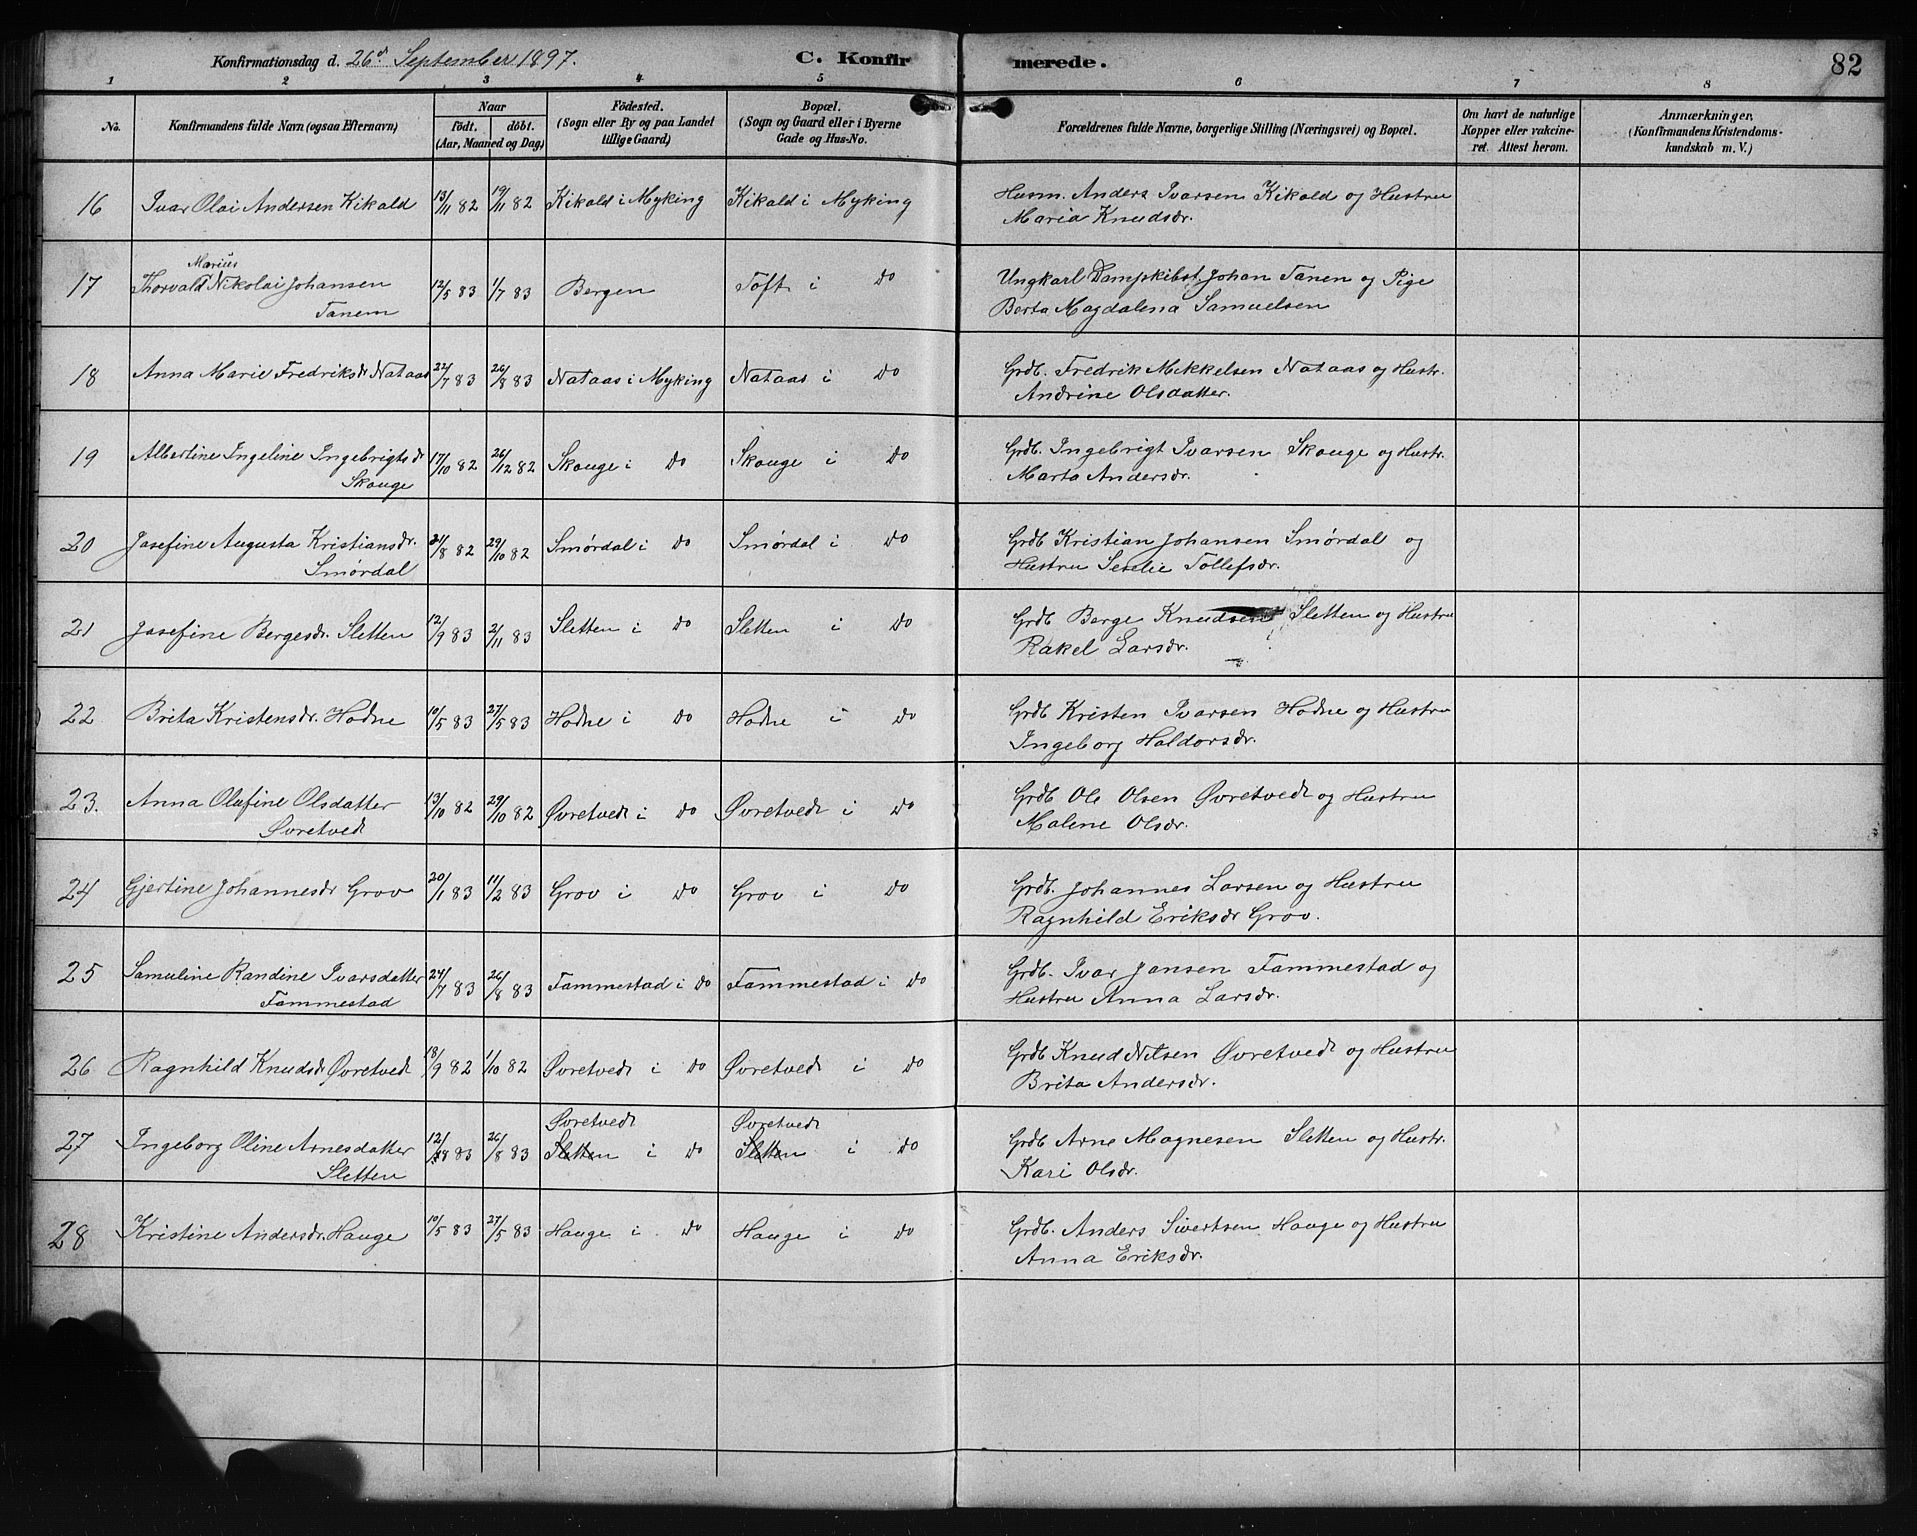 Konfirmationsdag d. 26de September 1897. C. Konfirmerede. 82
1 2 3 4 5 6 7 8
No. Konfirmandens fulde Navn (ogsaa Efternavn) Naar födt. döbt. (Aar, Maaned og Dag) Födested. (Sogn eller By og paa Landet tillige Gaard) Bopæl. (Sogn og Gaard eller i Byerne Gade og Hus-No. Forældrenes fulde Navne, borgerlige Stilling (Næringsvei) og Bopæl. Om havt de naturlige Kopper eller vakcineret. Attest herom. Anmærkninger. (Konfirmandens Kristendomskundskab m. V.)
16 Ivar Olai Andersen Kikald 13/11 82 19/11 82 Kikald i Myking Kikald i Myking Husm. Anders Ivarsen Kikald og Hustru
Maria Knudsdr.
Marius
17 Thorvald Nikolai Johansen 12/5 83 1/7 83 Bergen Toft i Do Ungkarl Dampskibst. Johan Tanem og Pige
Tanem Berta Magdalena Samuelsen
18 Anna Marie Fredriksdr Nataas 22/7 83 26/8 83 Nataas i Myking Nataas i Do Grdb. Fredrik Mikkelsen Nataas og Hustr.
Andrine Olsdatter.
19 Albertine Ingeline Ingebrigtsdr 17/10 82 26/12 82 Skauge i Do Skauge i Do Grdb. Ingebrigt Ivarsen Skauge og Hustr.
Skauge Marta Andersdr.
20 Josefine Augusta Kristiansdr. 21/8 82 29/10 82 Smørdal i Do Smørdal i Do Grdb Kristian Johansen Smørdal og
Smørdal Hustru Seselie Tollefsdr.
21 Josefine Bergesdr. Sletten 12/9 83 2/11 83 Sletten i Do Sletten i Do Grdb Berge Knudsen Sletten og Hustru
Rakel Larsdr.
22 Brita Kristensdr. Hodne 10/5 83 27/5 83 Hodne i Do Hodne i Do Grdb Kristen Ivarsen Hodne og Hustru
Ingeborg Haldorsdr.
23. Anna Olufine Olsdatter 13/10 82 29/10 82 Øvretvedt i Do Øvretvedt i Do Grdb Ole Olsen Øvretvedt og Hustru
Øvretvedt Malene Olsdr.
24 Gjertine Johannesdr Grov 20/1 83 11/2 83 Grov i Do Grov i Do Grdb. Johannes Larsen og Hustru
Ragnhild Eriksdr Grov.
25 Samuline Randine Ivarsdatter 24/7 83 26/8 83 Fammestad i Do Fammestad i Do Grdb. Ivar Jansen Fammestad og
Fammestad Hustru Anna Larsdr.
26 Ragnhild Knudsdr Øvretvedt 18/9 82 1/10 82 Øvretvedt i Do Øvretvedt i Do Grdb Knud Nilsen Øvretvedt og Hustru
Brita Andersdr.
Øvretvedt Øvretvedt
27 Ingeborg Oline Arnesdatter 12/8 83 26/8 83 Sletten i Do Sletten i Do Grdb Arne Magnesen Sletten og Hustr.
Sletten Kari Olsdr.
28 Kristine Andersdr. Hauge 10/5 83 27/5 83 Hauge i Do Hauge i Do Grdb. Anders Sivertsen Hauge og Hustru
Anna Eriksdr.